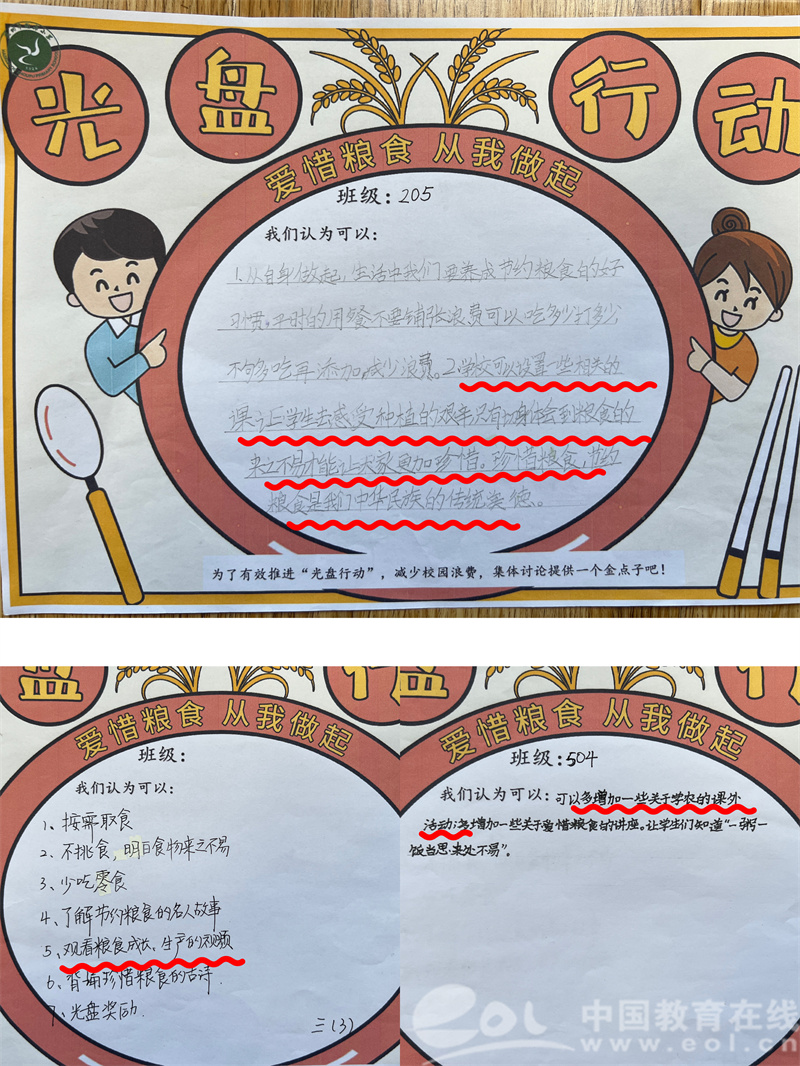 光盘行动
爱惜粮食 从我做起
班级：205
我们认为可以：
1、从自身做起，生活中我们要养成节约粮食的好
习惯。平时的用餐不要铺张浪费可以吃多少打多少
不够多吃再添加，减少浪费。2、学校可以设置一些相关的
课让学生去感受种植的艰辛只有切身体会到粮食的
来之不易才能让大家更加珍惜。珍惜粮食，节约
粮食是我们中华民族的传统美德。
为了有效推进“光盘行动”，减少校园浪费，集体讨论提供一个金点子吧！
盘 行
爱惜粮食 从我做起
班级：
我们认为可以：
1、按需取食
2、不挑食，明白食物来之不易
3、少吃零食
4、了解节约粮食的名人故事
5、观看粮食成长、生产的视频
6、背诵珍惜粮食的古诗.
7、光盘奖励.
三(3)
盘 行
爱惜粮食 从我做起
班级：504
我们认为可以：可以多增加一些关于学农的课外
活动；多增加一些关于爱惜粮食的讲座。让学生们知道“一粥一
饭当思来处不易”。
eol 中国教育在线
www.eol.cn